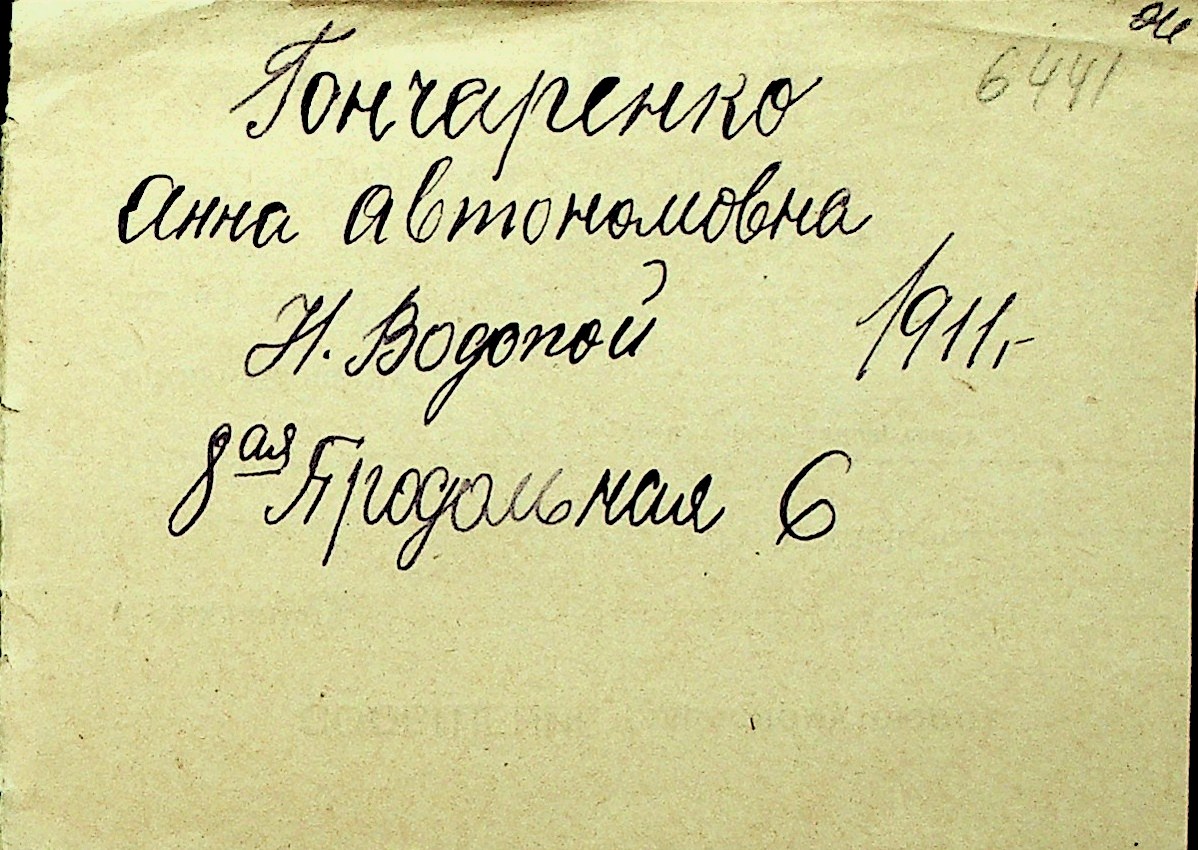 6441
Гончаренко
Анна Автономовна
Н. Водопой 1911 г
8ая Продольная 6